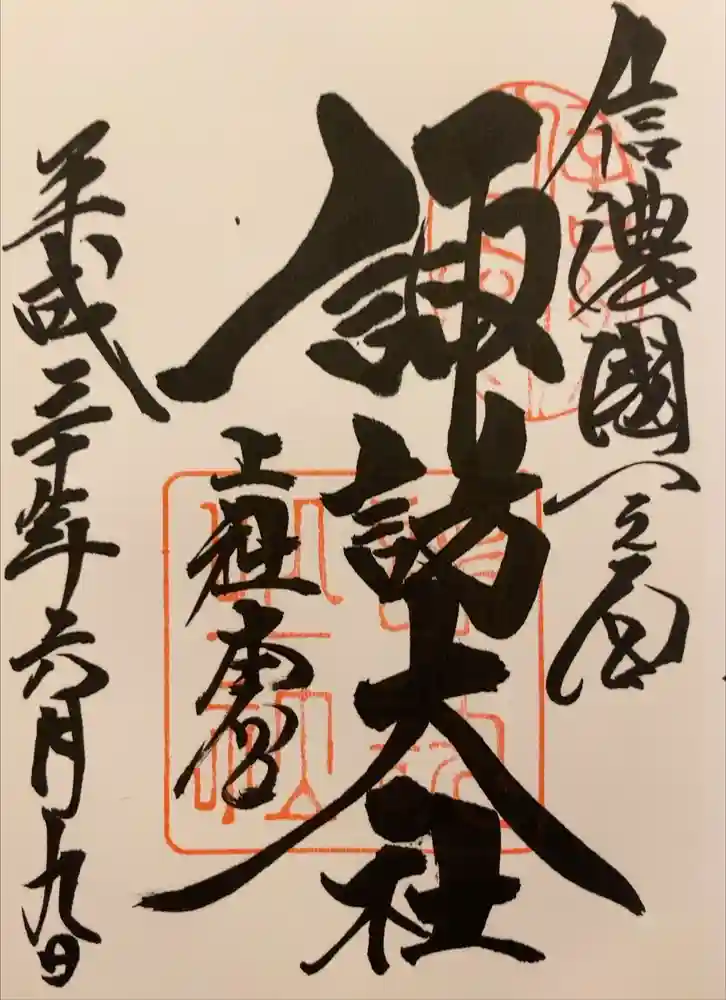 信濃國一之宮
諏訪大社
上社本宮
平成三十年六月九日